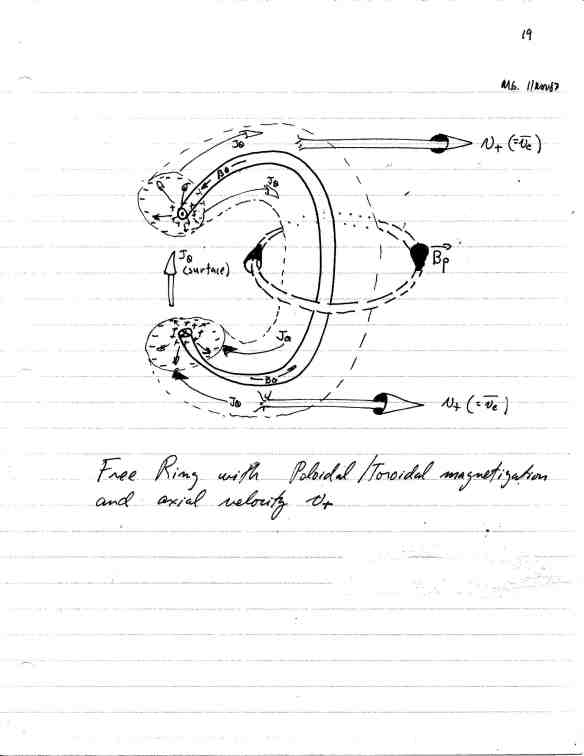 19
MG. 11Nov87
Jθ
V₊ (=v̅e)
Bθ
Jθ
+
Jθ
(surface)
Bp
I
Jθ
Bθ
Jθ
V₊ (=v̅e)
Free Ring with Poloidal/Toroidal magnetization
and axial velocity V₊